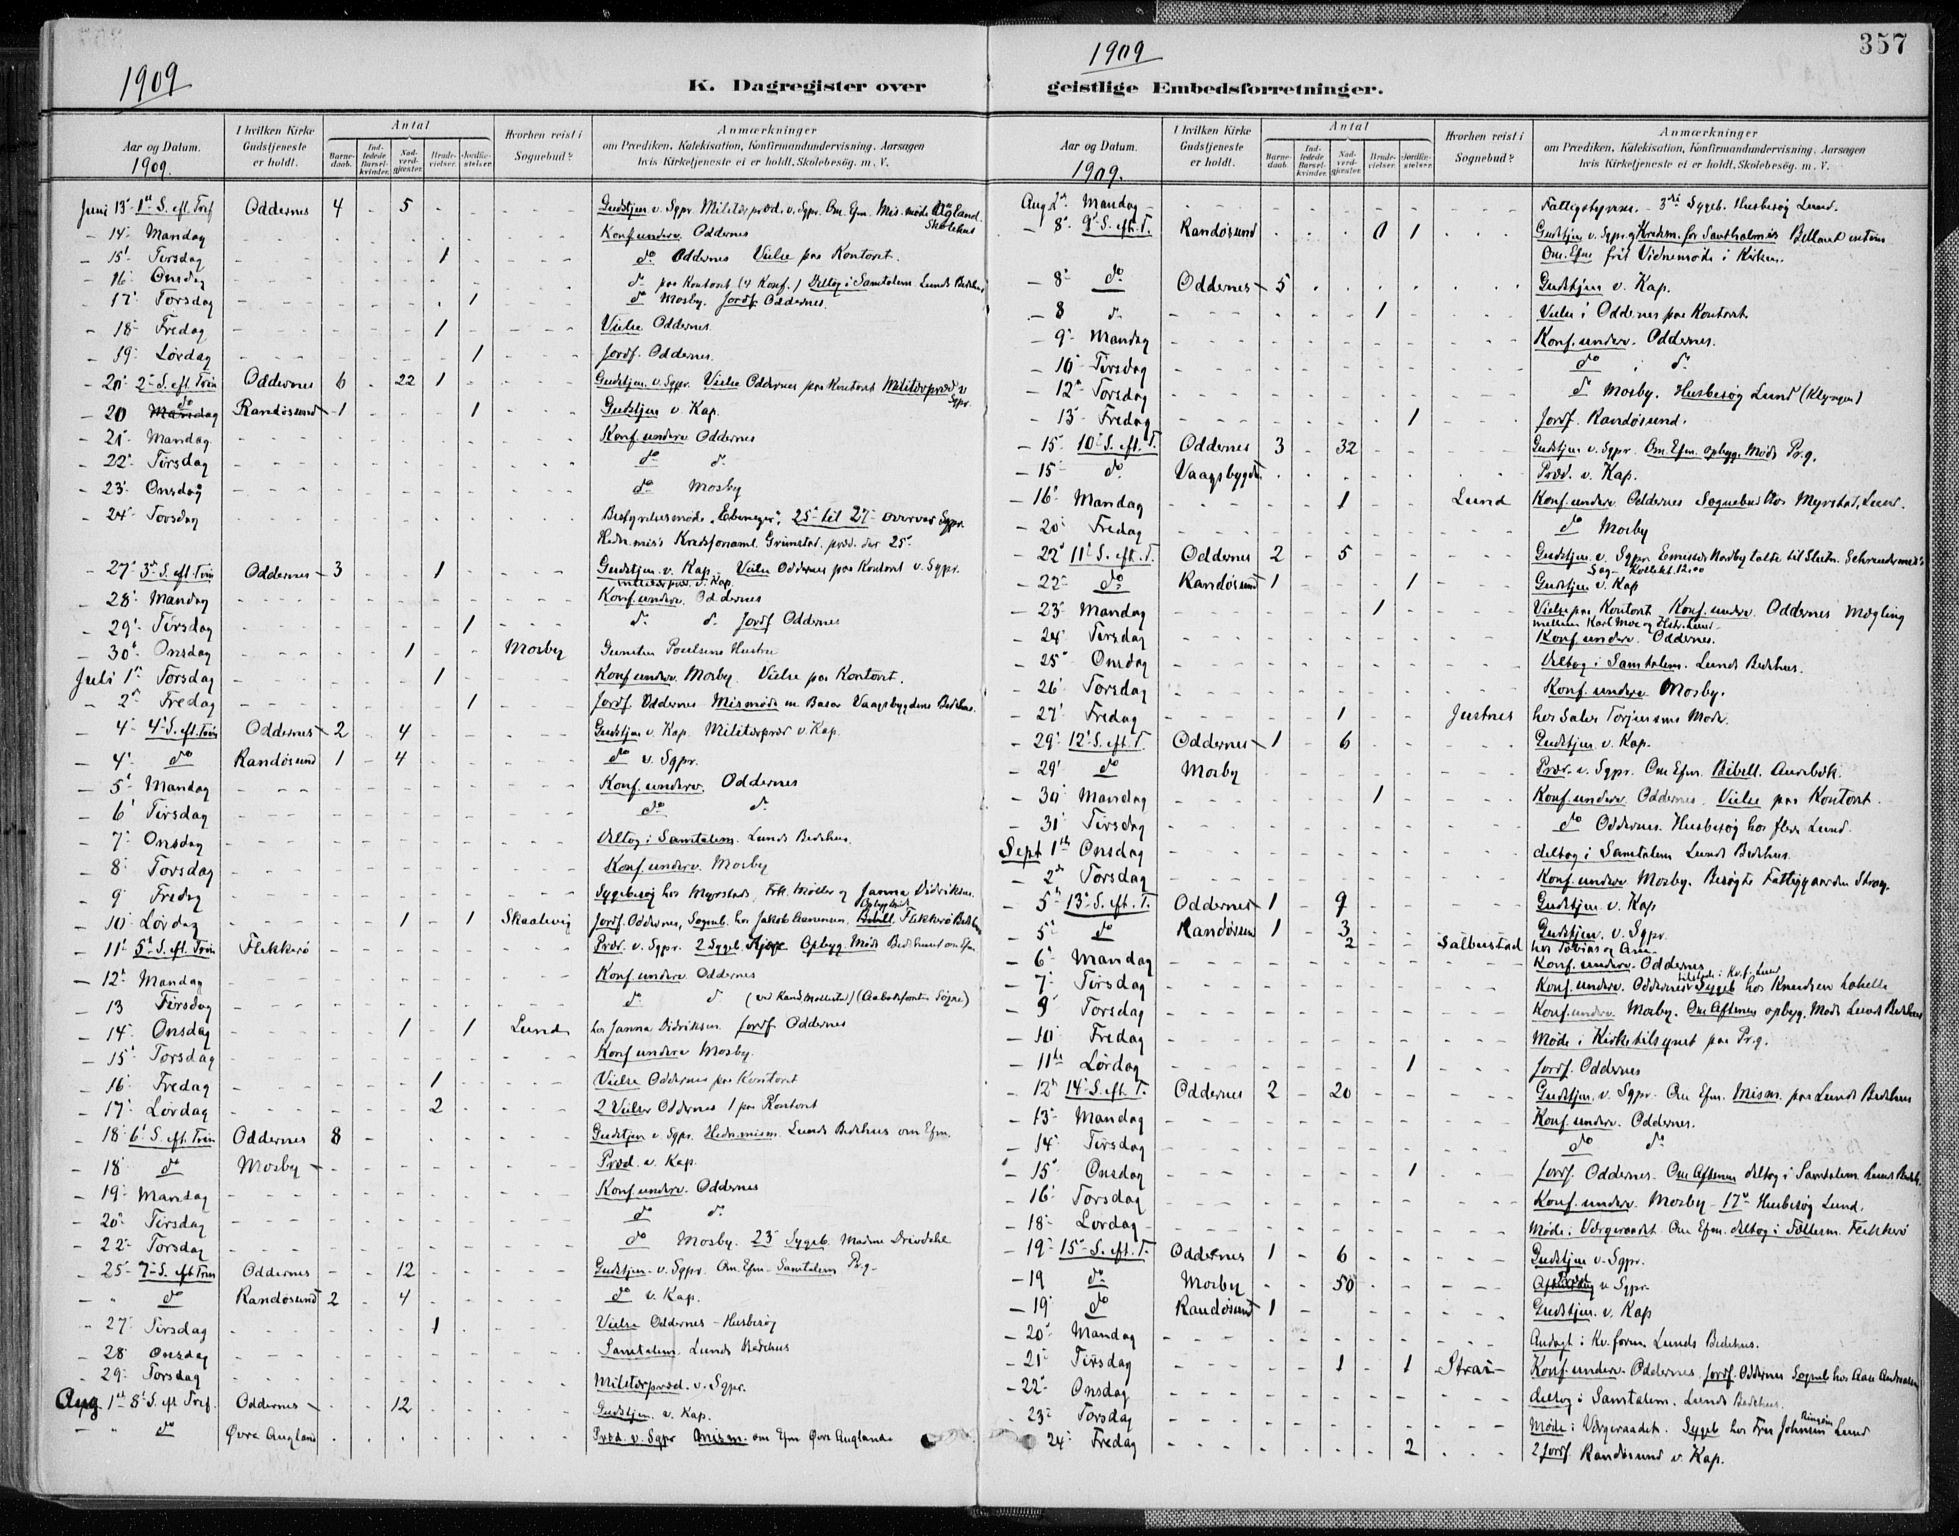 357
1909
1909
K. Dagregister over geistlige Embedsforretninger.
Aar og Datum. 1909.
I hvilken Kirke Gudstjeneste er holdt.
Antal
Barnedaab.
Indledede Barselkvinder.
Nadverdgjæster.
Brudevielser.
Jordfæstelser.
Hvorhen reist i Sognebud?
Anmærkninger
om Prædiken, Katekisation, Konfirmandundervisning, Aarsagen
hvis Kirketjeneste ei er holdt, Skolebesøg, m. V.
Juni 13' 1st S. eft. Tref Oddernes 4 - 5 Gudstjen v. Sgpr Militærpræd. v. Sgpr. Om Efm. Mis.møde Augland Skolehus
- 14' Mandag Konf.underv. Oddernes
- 15' Tirsdag 1 do Oddernes Vielse paa Kontoret.
- 16 Onsdag do paa Kontoret (4 Konf.) Deltog i Samtalem. Lunds Bedehus
- 17' Torsdag 1 do Mosby. Jordf. Oddernes.
- 18' Fredag 1 Vielse Oddernes.
- 19' Lørdag 1 Jordf. Oddernes.
- 20' 2' S. eft. Trin Oddernes 6 - 22 1 Gudstjen. v. Sgpr. Vielse Oddernes paa Kontoret Militærpræd v Sgpr.
- 20 do Randøsund 1 1 Gudstjen v. Kap.
- 21' Mandag Konf.underv Oddernes
- 22' Tirsdag do do
- 23' Onsdag do Mosby
- 24' Torsdag Bestyrelsesmøde "Ebenezer". 25' til 27' overvar Sgpr.
Hedn.mis's Kredsforsaml. Grimstad. præd. der 25'
- 27' 3' S. eft. Trin Oddernes 3 1 Gudstjen. v. Kap. Vielse Oddernes paa Kontoret v. Sgpr.
Militærpræd. v. Kap.
- 28' Mandag Konf.underv. Oddernes
- 29' Tirsdag 1 do do Jordf Oddernes
- 30' Onsdag 1 Mosby Poulsens Hustru
Juli 1st Torsdag 1 Konf.underv. Mosby. Vielse paa Kontoret.
- 2' Fredag 1 Jordf. Oddernes Mismøde m Basar Vaagsbygdens Bedehus.
- 4' 4' S. eft. Trin Oddernes 2 - 4 Gudstjen v. Kap. Militærpræd v. Kap.
- 4' do Randøsund 1 - 4 do v. Sgpr.
- 5' Mandag Konf.underv. Oddernes
- 6' Tirsdag do do
- 7' Onsdag Deltog i Samtalem. Lunds Bedehus.
- 8' Torsdag Konf.underv. Mosby
- 9' Fredag Sygebesøg hos Myrstad, Frk. Møller og Janna Didriksen.
- 10' Lørdag 1 - 1 Skaalevig Jordf. Oddernes, Sognb. hos Jakob Flekkerø Bedehus
- 11' 5' S. eft. Trin Flekkerø Præd. v. Sgpr. 2 Sygeb. Opbyg. Møde Bedehuset om Efm.
- 12' Mandag Konf.underv Oddernes
- 13 Tirsdag do do
- 14' Onsdag 1 - 1 Lund hos Janna Didriksen. Jordf. Oddernes
- 15' Torsdag Konf.underv Mosby.
- 16' Fredag 1 Vielse Oddernes paa Kontoret
- 17' Lørdag 2 2 Vielser Oddernes 1 paa Kontoret
- 18' 6' S. eft. Trin Oddernes 8 Gudstjen v. Sgpr. Hedn.mism. Lunds Bedehus om Efm.
- 18' do Mosby Præd. v. Kap.
- 19' Mandag Konf.underv. Oddernes
- 20' Tirsdag do do
- 22' Torsdag do Mosby. 23' Sygeb. Madme Drivdahl
- 25' 7' S. eft Trin Oddernes 12 Gudstjen. v. Sgpr. Om Efm. Samtalem Pr.g.
- " do Randøsund 2 - 4 do v. Kap.
- 27' Tirsdag 1 Vielse Oddernes - Husbesøg
- 28' Onsdag Samtalem. Lunds Bedehus
- 29' Torsdag Militærpræd. v. Sgpr.
Aug 1st 8' S. eft Tref. Oddernes 12 Gudstjen. v. Kap.
- " do Øvre Augland Præd. v. Sgpr Mism. om Efm Øvre Auglands
Aar og Datum. 1909.
I hvilken Kirke Gudstjeneste er holdt.
Antal
Barnedaab.
Indledede Barselkvinder.
Nadverdgjæster.
Brudevielser.
Jordfæstelser.
Hvorhen reist i Sognebud?
Anmærkninger
om Prædiken, Katekisation, Konfirmandundervisning, Aarsagen
hvis Kirketjeneste ei er holdt, Skolebesøg, m. V.
Aug. 2' Mandag Fattigstyrelse. - 3die Sygeb. Husbesøg Lund.
- 8' 9' S. eft. T. Randøsund 0 1 Gudstjen v. Sgpr. og Kredsm. for Santhalmis
Om. Efm frit Vidnemøde i Kirken.
- 8' do Oddernes 5 Gudstjen v. Kap.
- 8 do 1 Vielse i Oddernes paa Kontoret
- 9' Mandag Konf.underv. Oddernes.
- 10' Tirsdag do do
- 12' Torsdag do Mosby. Husbesøg Lund (Klyngen)
- 13' Fredag 1 Jordf. Randøsund.
- 15' 10' S. eft. T. Oddernes 3 - 32 Gudstjen v. Sgpr. Om. Efm. opbyg. Møde Pr.g.
- 15' do Vaagsbygden Præd. v. Kap.
- 16' Mandag 1 Lund Konf.underv Oddernes Sognebud hos Myrstad, Lund.
- 20' Fredag do Mosby
- 22' 11' S. eft. T. Oddernes 2 - 5 Gudstjen v. Sgpr. Nordby talte til Slutn.
Sag - Kollekt. 12.00
- 22' do Randøsund 1 1 Gudstjen v. Kap
- 23' Mandag 1 Vielse paa Kontoret Konf.underv. Oddernes Mægling
mellem Karl Moe og Hstr. Lund
- 24' Tirsdag Konf.underv. Oddernes.
- 25' Onsdag Deltog i Samtalem. Lunds Bedehus.
- 26' Torsdag Konf.underv Mosby.
- 27' Fredag 1 Justnes hos Salve Torjussens Moder.
- 29' 12' S. eft. T. Oddernes 1 - 6 Gudstjen. v. Kap.
- 29' do Mosby Præd. v. Sgpr. Om Efm. Bibell. Aurebæk.
- 30' Mandag 1 Konf.underv Oddernes. Vielse paa Kontoret.
- 31' Tirsdag do Oddernes. Husbesøg hos flere Lund.
Sept 1ste Onsdag deltog i Samtalem Lunds Bedehus.
- 2' Torsdag Konf.underv Mosby. Besøgte Fattiggaarden Strai.
- 5' 13' S. eft. T. Oddernes 1 - 9 Gudstjen v. Kap
- 5' do Randøsun 1 - 3 Gudstjen. v. Sgpr.
2 Salbustad hos Tobias og Ane
- 6' Mandag Konf.underv. Oddernes
- 7' Tirsdag Konf.underv. Oddernes Sygeb hos Knudsen
- 9' Torsdag Konf.underv Mosby. Om Aftenen opbyg. Møde Lunds Bedehus
- 10' Fredag Møde i Kirketilsynet paa Pr.g.
- 11te Lørdag 1 Jordf. Oddernes
- 12' 14' S. eft. T. Oddernes 2 - 20 Gudstjen. v. Sgpr. Om Efm. Mism. paa Lunds Bedehus
- 13' Mandag Konf.underv. Oddernes.
- 14' Tirsdag do do
- 15' Onsdag 1 Jordf. Oddernes. Om Aftenen deltog i Samtalem Lunds Bedeh.
- 16' Torsdag Konf.underv. Mosby - 17' Husbesøg Lund.
- 18' Lørdag Møde i Værgeraadet. Om Efm. deltog i Fællesm. Flekkerø
- 19' 15' S. eft. T. Oddernes 1 - 6 Gudstjen v. Sgpr.
- 19 do Mosby 50 v Sgpr.
- 19' do Randøsund 1 Gudstjen. v. Kap
- 20' Mandag Andagt i Kv.foren Lunds Bedehus.
- 21' Tirsdag 1 - 1 Strai Konf.underv. Oddernes, Jordf. Oddernes Sogneb hos Aase Andreassen
- 22' Onsdag deltog i Samtalem. Lunds Bedehus.
- 23' Torsdag Møde i Værgeraadet. Sygeb hos Fru Johnsen Lund
- 24' Fredag 2 2 Jordf. Randøsund v. Kap.